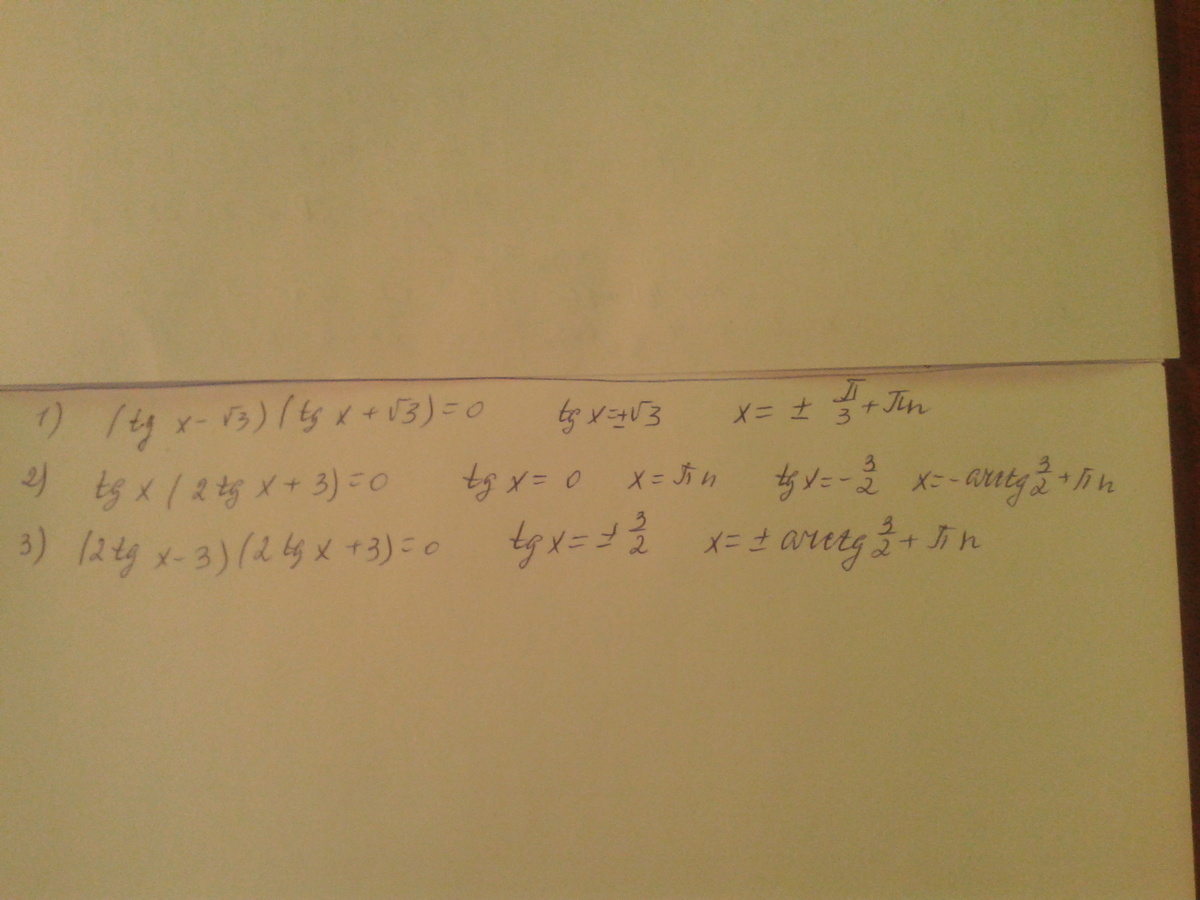 1) (tg x - √3) (tg x + √3) = 0 tg x = ± √3 x = ± π/3 + πn
2) tg x (2 tg x + 3) = 0 tg x = 0 x = πn tg x = - 3/2 x = - arctg 3/2 + πn
3) (2 tg x - 3) (2 tg x + 3) = 0 tg x = ± 3/2 x = ± arctg 3/2 + πn